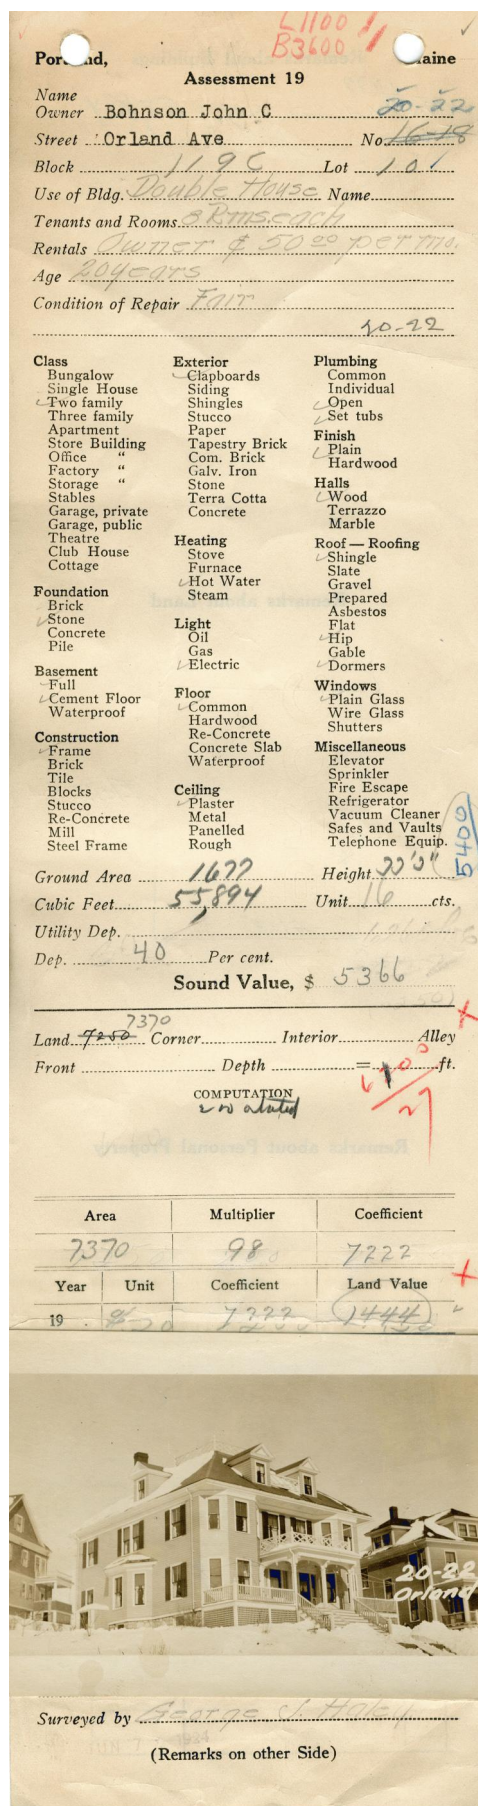 L1100
B3600
Portland, Maine
Assessment 19
Name
Owner Bohnson John C 20-22
Street Orland Ave No 16-18
Block 119C Lot 101
Use of Bldg. Double House Name
Tenants and Rooms 8 Rms. each
Rentals Owner & 50 00 per mo.
Age 20 years
Condition of Repair Fair
20-22
Class
Bungalow
Single House
Two family
Three family
Apartment
Store Building
Office "
Factory "
Storage "
Stables
Garage, private
Garage, public
Theatre
Club House
Cottage
Foundation
Brick
Stone
Concrete
Pile
Basement
Full
Cement Floor
Waterproof
Construction
Frame
Brick
Tile
Blocks
Stucco
Re-Concrete
Mill
Steel Frame
Exterior
Clapboards
Siding
Shingles
Stucco
Paper
Tapestry Brick
Com. Brick
Galv. Iron
Stone
Terra Cotta
Concrete
Heating
Stove
Furnace
Hot Water
Steam
Light
Oil
Gas
Electric
Floor
Common
Hardwood
Re-Concrete
Concrete Slab
Waterproof
Ceiling
Plaster
Metal
Panelled
Rough
Plumbing
Common
Individual
Open
Set tubs
Finish
Plain
Hardwood
Halls
Wood
Terrazzo
Marble
Roof — Roofing
Shingle
Slate
Gravel
Prepared
Asbestos
Flat
Hip
Gable
Dormers
Windows
Plain Glass
Wire Glass
Shutters
Miscellaneous
Elevator
Sprinkler
Fire Escape
Refrigerator
Vacuum Cleaner
Safes and Vaults
Telephone Equip.
5400
Ground Area 1677 Height
Cubic Feet 55,894 Unit 16 cts.
Utility Dep.
Dep. 40 Per cent.
Sound Value, $ 5366
7370
Land 7250 Corner Interior Alley
Front Depth = ft.
COMPUTATION
Area Multiplier Coefficient
7370 98 7222
Year Unit Coefficient Land Value
19 7222 1444
20-22
Orland
Surveyed by George J.
(Remarks on other Side)